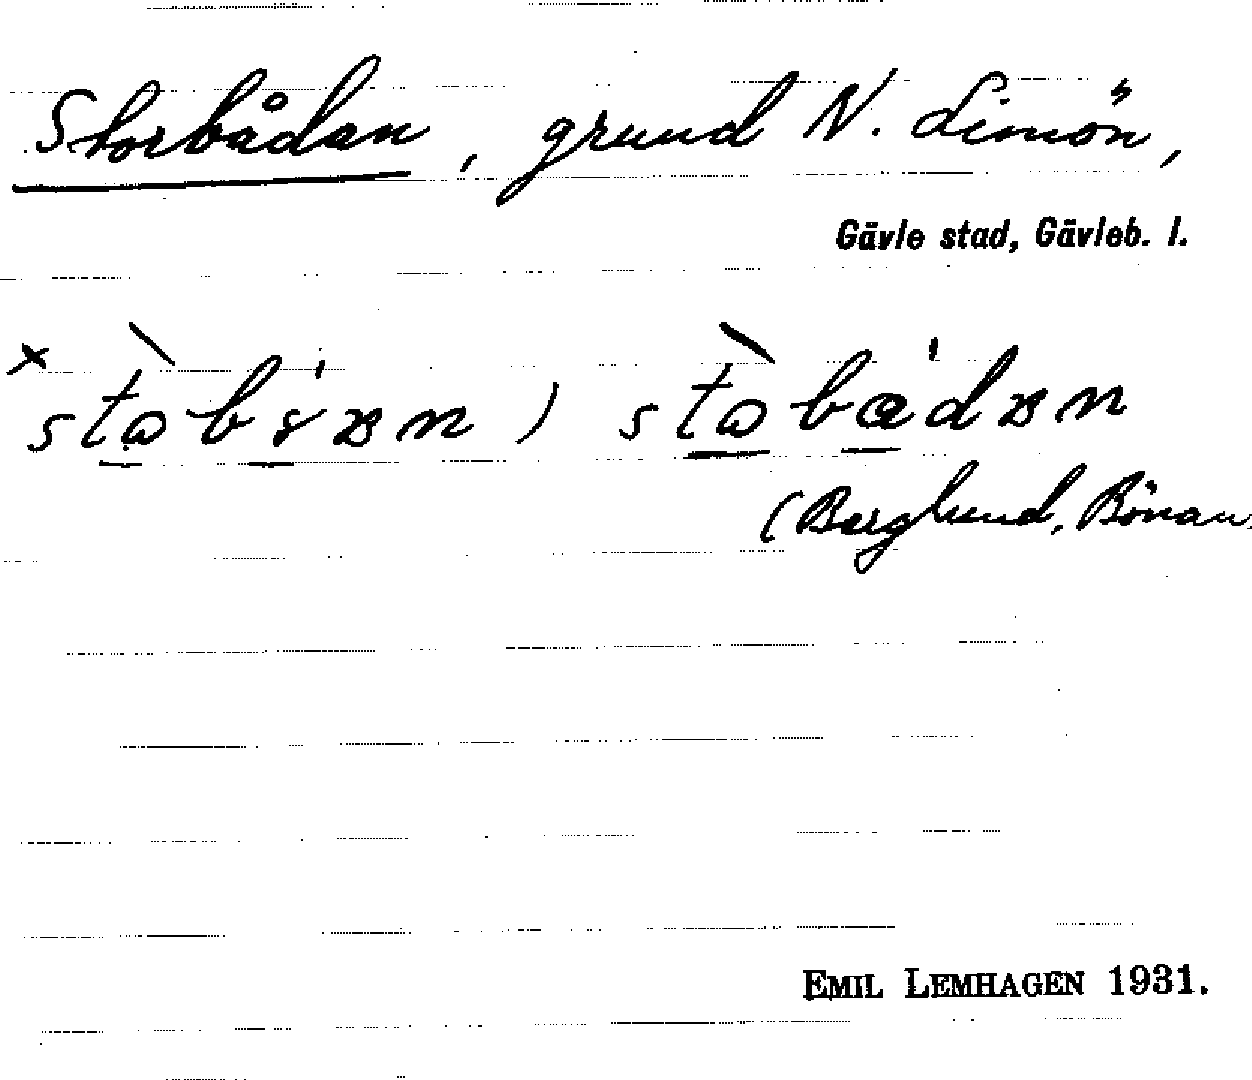 Storbådan, grund N. Limön,
Gävle stad, Gävleb. l.
(Berglund, Bönan
EMIL LEMHAGEN 1931.